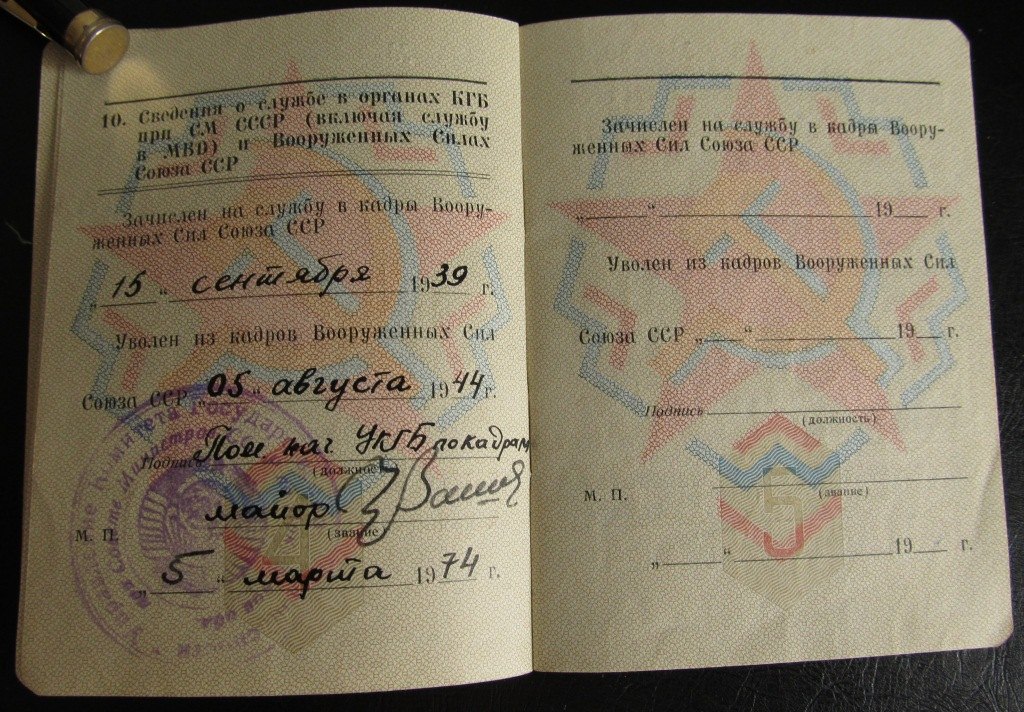 10. Сведения о службе в органах КГБ
при СМ СССР (включая службу
в МВД) и Вооруженных Силах
Союза ССР
Зачислен на службу в кадры Воору-
женных Сил Союза ССР
„ 15 “ сентября 1939 г.
Уволен из кадров Вооруженных Сил
Союза ССР „05“ августа 1944 г.
Подпись Пом нач УКГБ по кадрам
(должность)
майор
(звание)
М. П.
„ 5 “ марта 1974 г.
4
Зачислен на службу в кадры Воору-
женных Сил Союза ССР
„ “ 19 г.
Уволен из кадров Вооруженных Сил
Союза ССР „ “ 19 г.
Подпись
(должность)
М. П.
(звание)
„ “ 19 г.
5